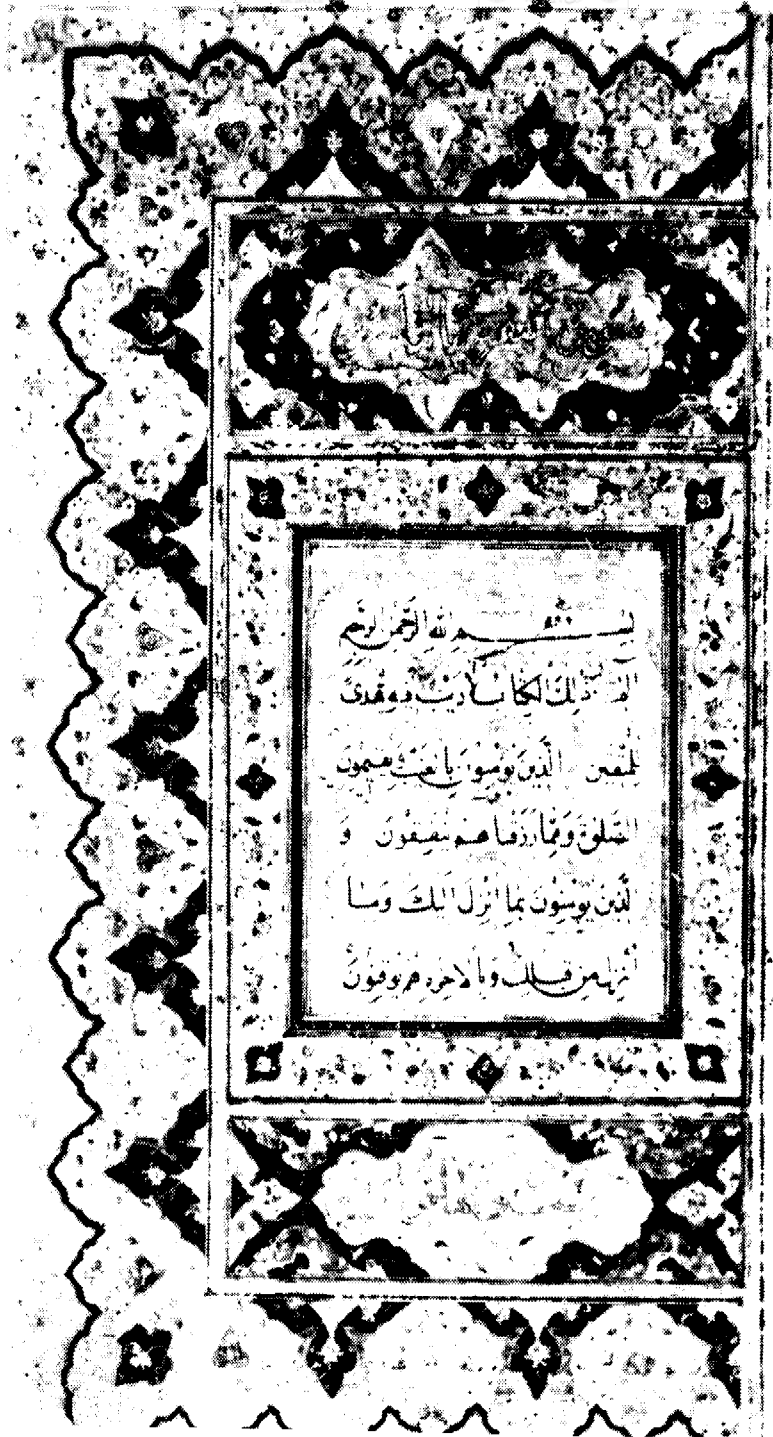 بسم الله الرحمن الرحيم
الم ذلك الكتاب لا ريب فيه هدى
للمتقين الذين يؤمنون بالغيب ويقيمون
الصلوة ومما رزقناهم ينفقون و
الذين يؤمنون بما انزل اليك وما
انزل من قبلك وبالاخرة هم يوقنون